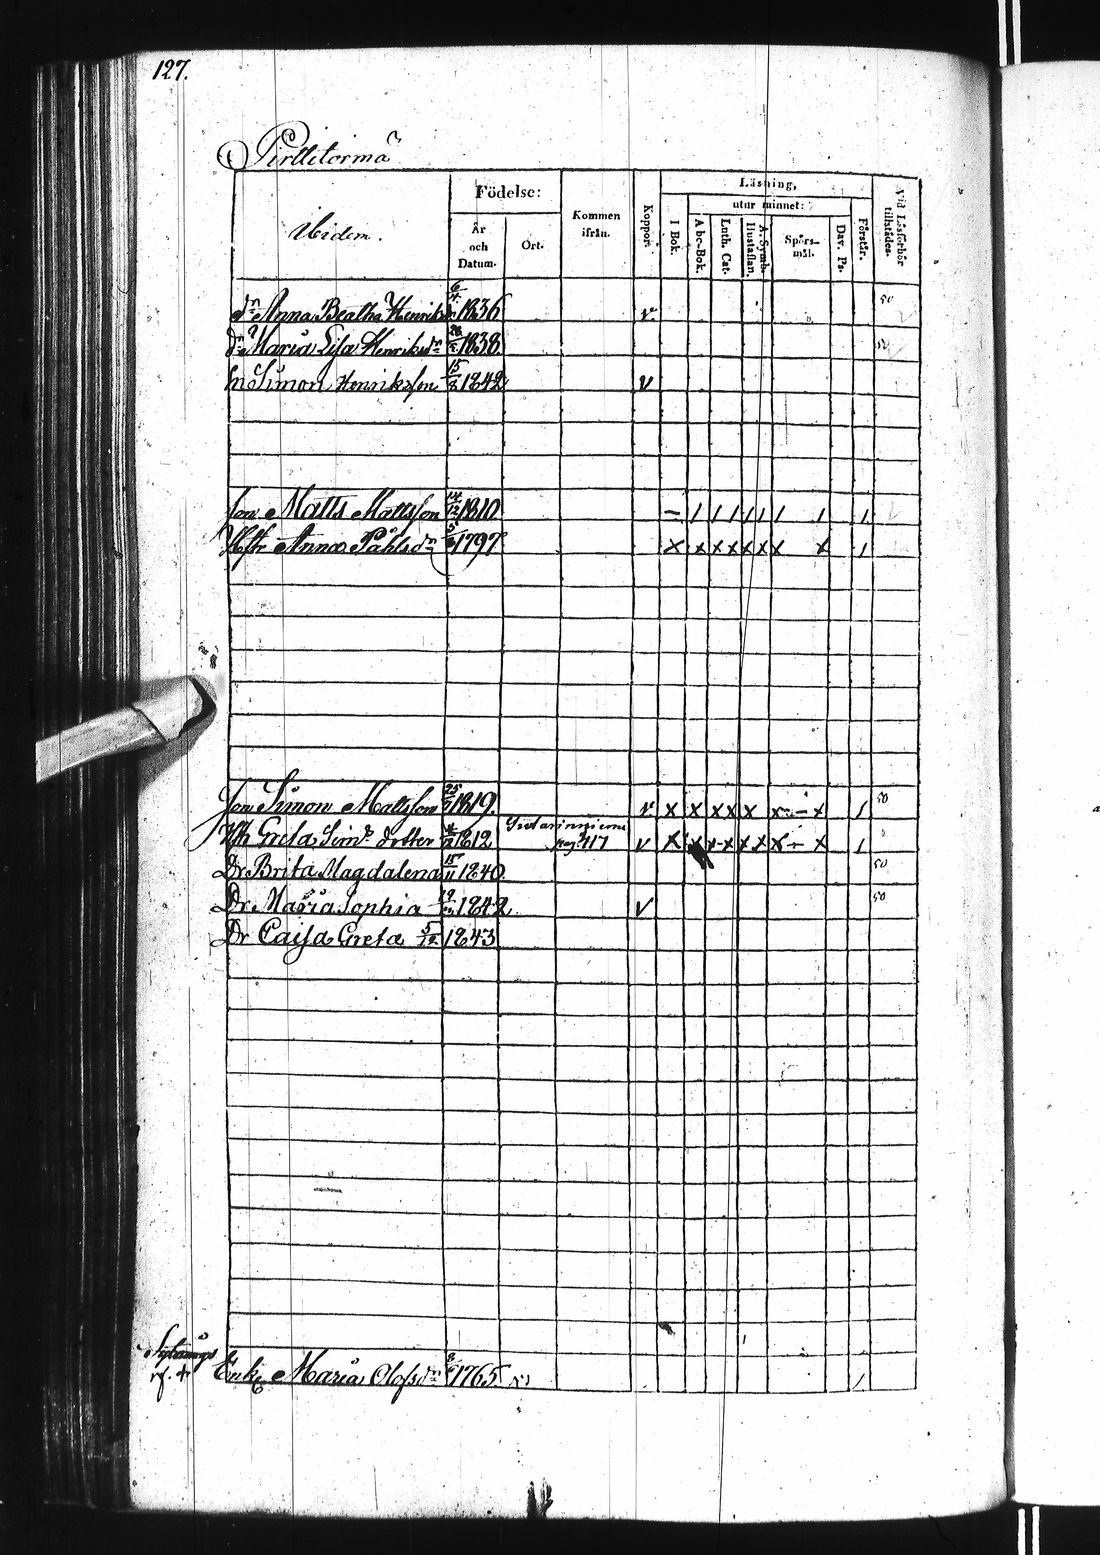 127.
Pirttitörmä
Ibidem.
Födelse:
År och Datum.
Ort.
Kommen ifrån.
Koppor.
Läsning,
utur minnet:
I Bok.
Abc-Bok.
Luth. Cat.
A. Symb. Hustaflan.
Spörs-mål.
Dav. Ps.
Förstår.
Vid Läsförhör tillstädes.
dr Anna Beatha Henriks 6/4 1836 v. 50
dr Maria Lisa Henriksdr 1838
Sn Simon Henriksson 15/8 1842 v
Son Matts Mattsson 14/12 1810 – 1 1 1 1 1 1 1 1
Hstr Anna Påhlsdr 5 1797 x x x x x x x x 1
Son Simon Mattsson 25 1819. v x x x x x x – x 1 50
Hst Greta Sims dotter 1812 pag. 417 v x x x x x x x – x 1
Dr Brita Magdalena 15/11 1840 50
Dr Maria Sophia 19 1842 v 50
Dr Caisa Greta 5/12 1843
rf. +
Enk Maria Olofsdr 1765 1